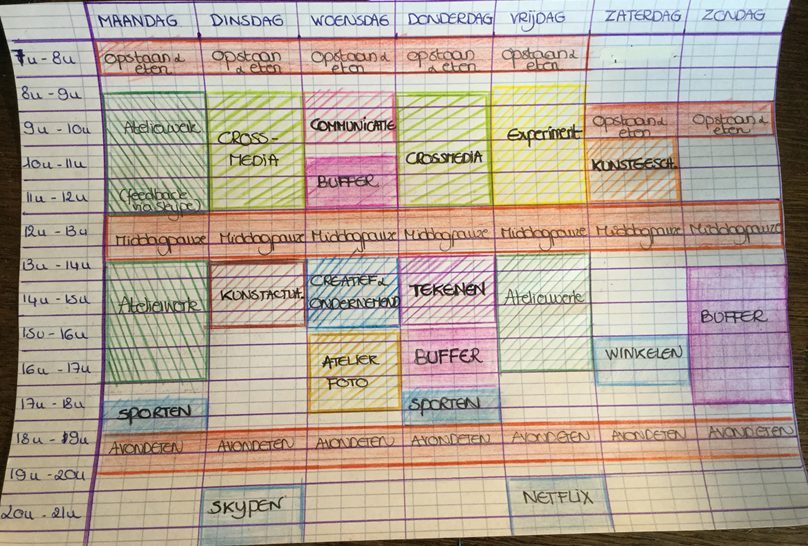 MAANDAG DINSDAG WOENSDAG DONDERDAG VRIJDAG ZATERDAG ZONDAG
7u - 8u Opstaan & eten Opstaan & eten Opstaan & eten Opstaan & eten Opstaan & eten
8u - 9u
9u - 10u Atelierwerk CROSS- COMMUNICATIE Experiment Opstaan & eten Opstaan & eten
10u - 11u MEDIA BUFFER CROSSMEDIA KUNSTGESCH.
11u - 12u (feedback via skype)
12u - 13u Middagpauze Middagpauze Middagpauze Middagpauze Middagpauze Middagpauze Middagpauze
13u - 14u CREATIEF &
14u - 15u Atelierwerk KUNSTACTUA. ONDERNEMEND TEKENEN Atelierwerk BUFFER
15u - 16u
16u - 17u ATELIER FOTO BUFFER WINKELEN
17u - 18u SPORTEN SPORTEN
18u - 19u AVONDETEN AVONDETEN AVONDETEN AVONDETEN AVONDETEN AVONDETEN AVONDETEN
19u - 20u
20u - 21u SKYPEN NETFLIX